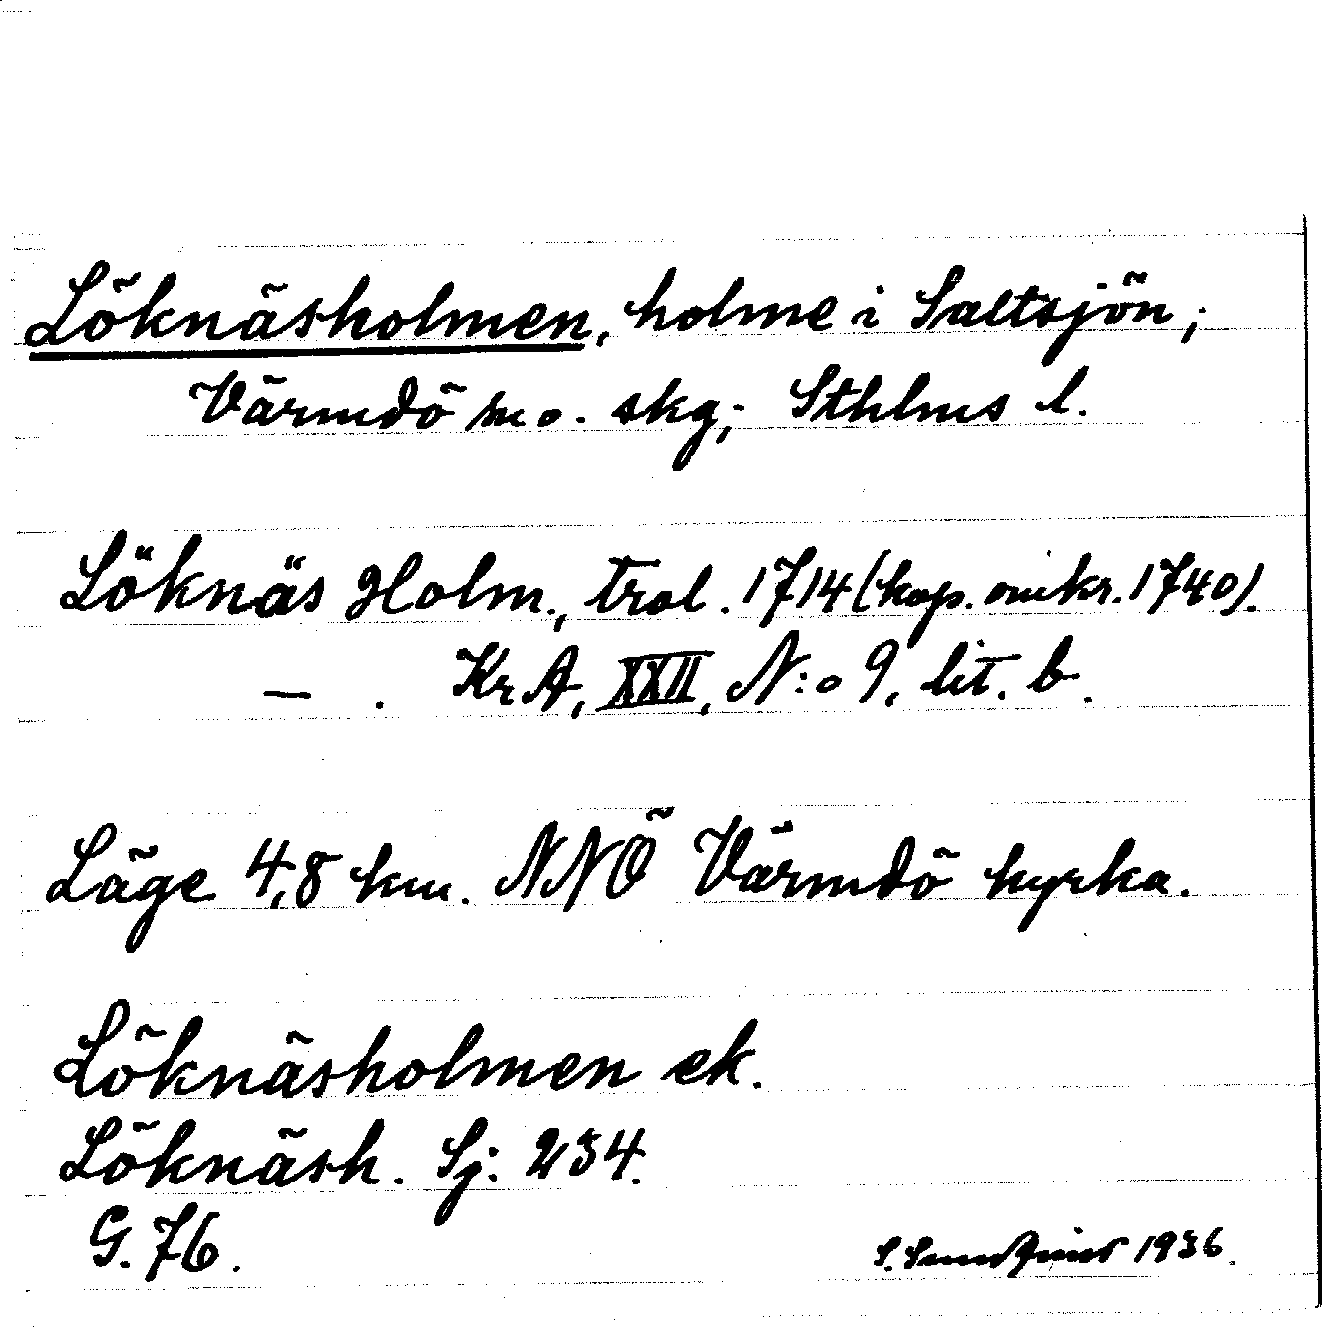 Löknäsholmen, holme i Saltsjön,
Värmdö m o. skg; Sthlms l.
Löknäs Holm., trol. 1714 (kop. omkr. 1740).
— . KrA, XXII, N:o 9, lit. b.
Läge 4,8 km. NNÖ Värmdö kyrka.
Löknäsholmen ek.
Löknäsh. Sj: 234.
G. 76.
S. 1936.